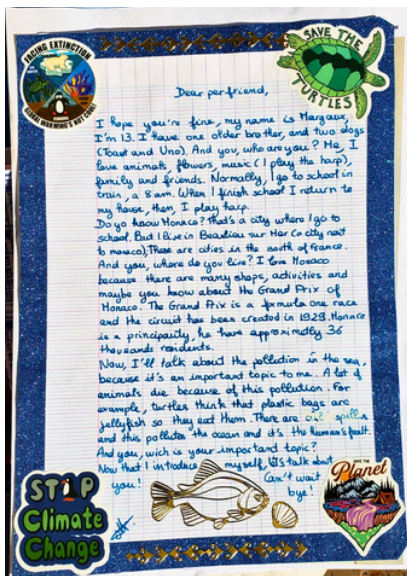 FACING EXTINCTION
GLOBAL WARMING'S NOT COOL!
SAVE THE
TURTLES
Dear penfriend,
I hope you're fine, my name is Margaux,
I'm 13. I have one older brother, and two dogs
(Toast and Uno). And you, who are you? Me, I
love animals, flowers, music (I play the harp),
family and friends. Normally, I go to school in
train, a 8 am. When I finish school I return to
my house, then, I play harp.
Do yo know Monaco? That's a city where I go to
school. But I live in Beaulieu sur Mer (a city next
to monaco). These are cities in the south of France.
And you, where do you live? I love Monaco
because there are many shops, activities and
maybe you know about the Grand Prix of
Monaco. The Grand Prix is a formula one race
and the circuit has been created in 1929. Monaco
is a principality, he have approximatly 36
thousands residents.
Now, I'll talk about the pollution in the sea,
because it's an important topic to me. A lot of
animals die because of this pollution. For
example, turtles think that plastic bags are
jellyfish so they eat them. There are oil spills
and this pollutes the ocean and it's the human's fault.
And you, wich is your important topic?
Now that I introduce myself, let's talk about
you! Can't wait
bye!
STOP
Climate
Change
SAVE THE
Planet